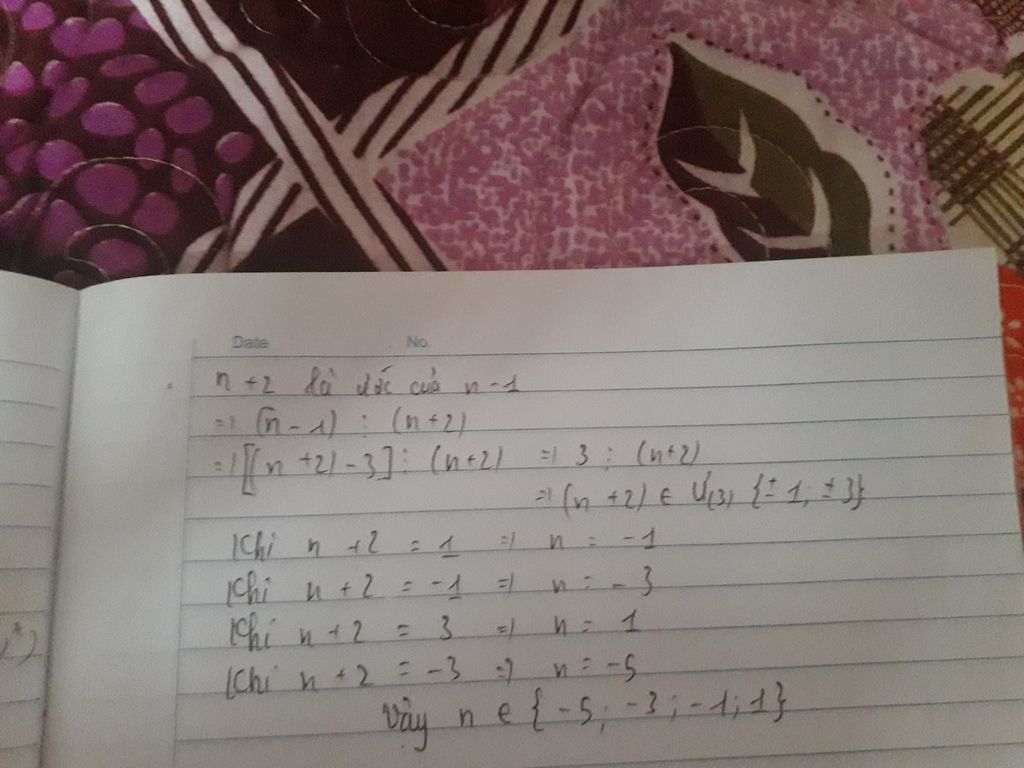 Date No.
n + 2 là ước của n - 1
=> (n - 1) ⋮ (n + 2)
=> [(n + 2) - 3] ⋮ (n + 2) => 3 ⋮ (n + 2)
=> (n + 2) ∈ Ư(3) {± 1; ± 3}
Khi n + 2 = 1 => n = -1
Khi n + 2 = -1 => n = -3
Khi n + 2 = 3 => n = 1
Khi n + 2 = -3 => n = -5
Vậy n ∈ {-5; -3; -1; 1}